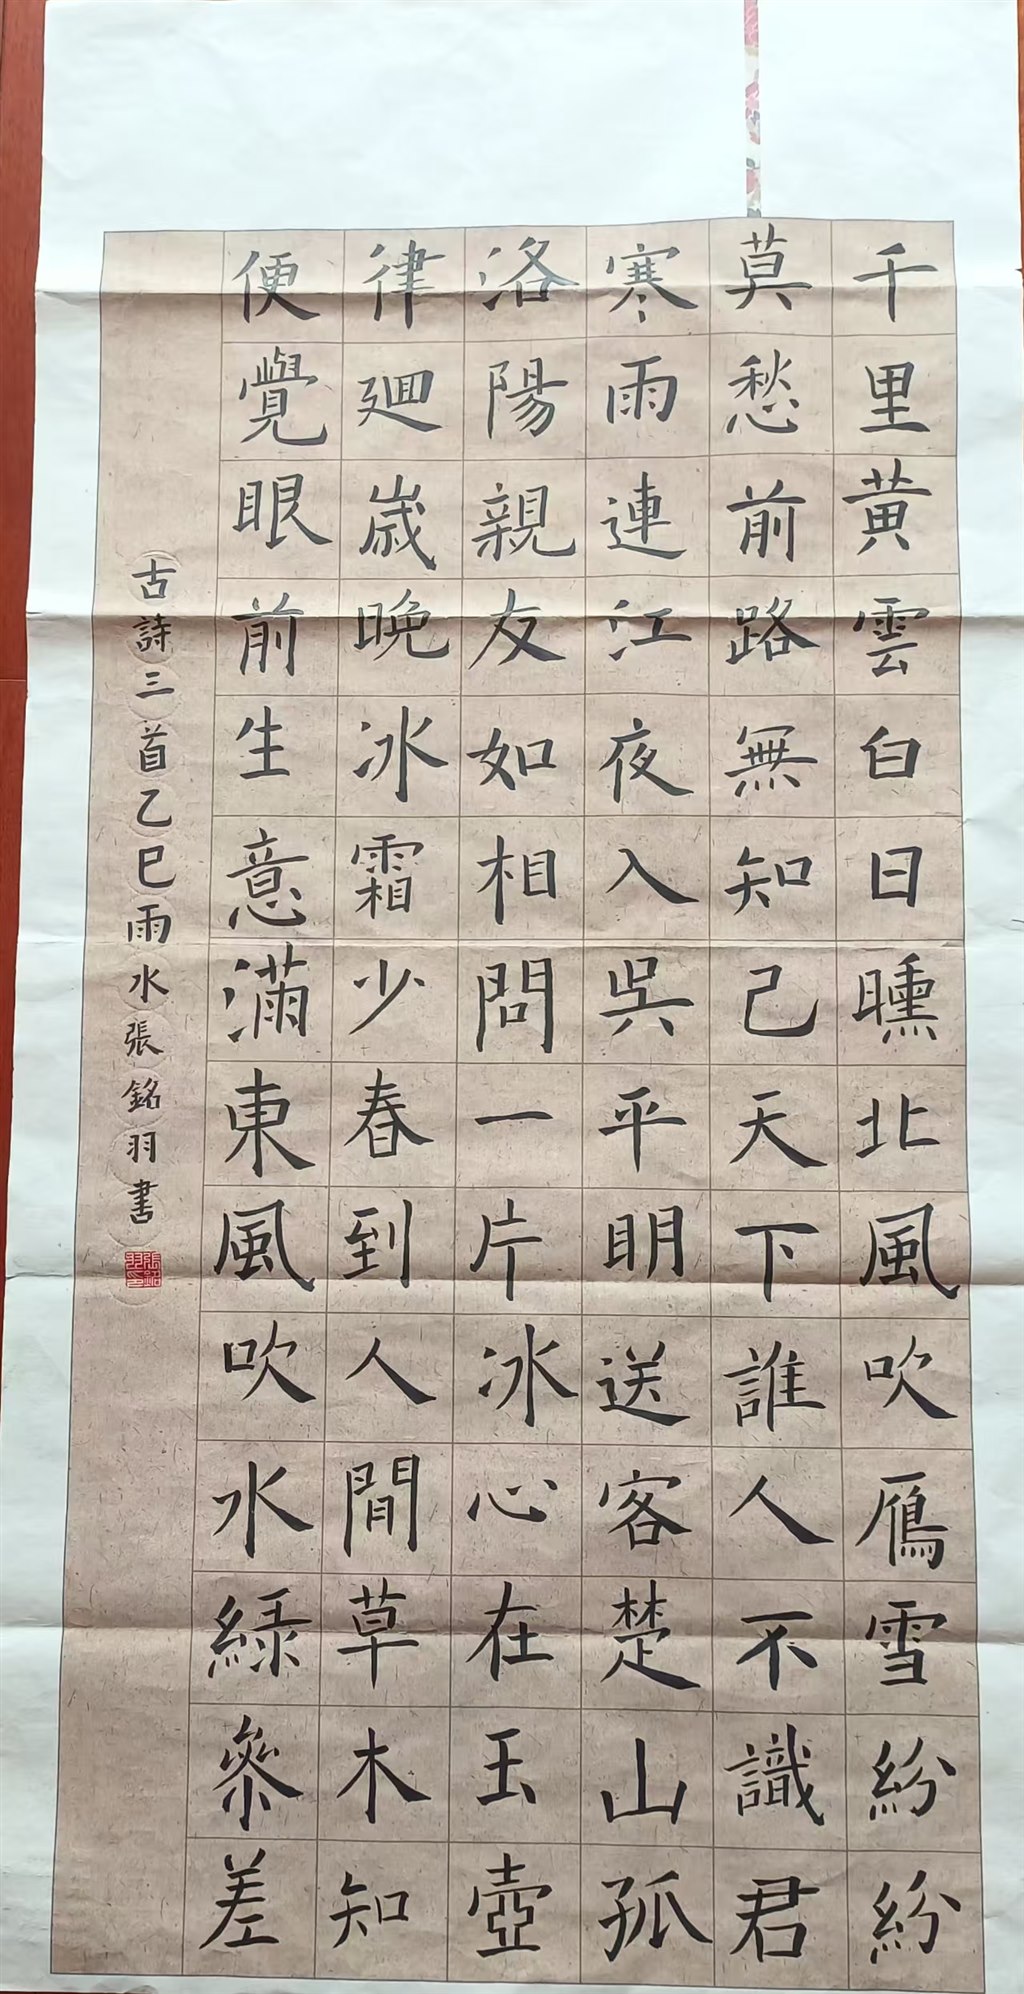 千里黄雲白日曛北風吹鴈雪紛紛
莫愁前路無知己天下誰人不識君
寒雨連江夜入吳平明送客楚山孤
洛陽親友如相問一片冰心在玉壺
律廻歲晚冰霜少春到人間草木知
便覺眼前生意滿東風吹水綠參差
古詩三首乙巳雨水張銘羽書
張銘羽印